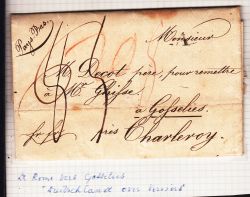 Pays-Bas.
Monsieur
Mr. Docot père, pour remettre
à Mr. Ghisse
à Gosselies
près Charleroy.
De Rome vers Gosselies
"Deutschland over